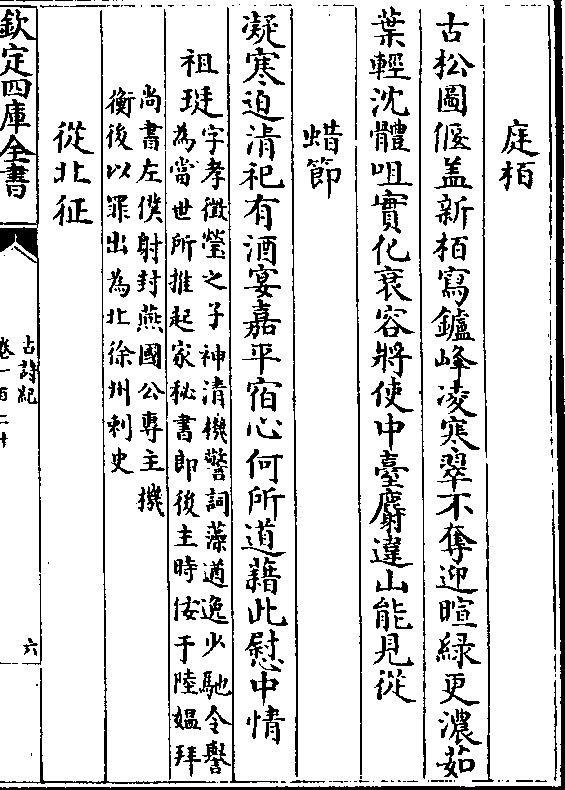 庭栢
古松圖偃盖新栢寫鑪峰凌寒翠不奪迎暄緑更濃茹
葉輕沈體咀實化衰容將使中臺麝違山能見從
蜡節
凝寒迫清祀有酒宴嘉平宿心何所道藉此慰中情
祖珽
字孝徴瑩之子神清機警詞藻遒逸少馳令譽
為當世所推起家秘書郎後主時佞于陸媼拜
尚書左僕射封燕國公專主機
衡後以罪出為北徐州刺史
從北征
欽定四庫全書
古詩紀
卷一百二十
六